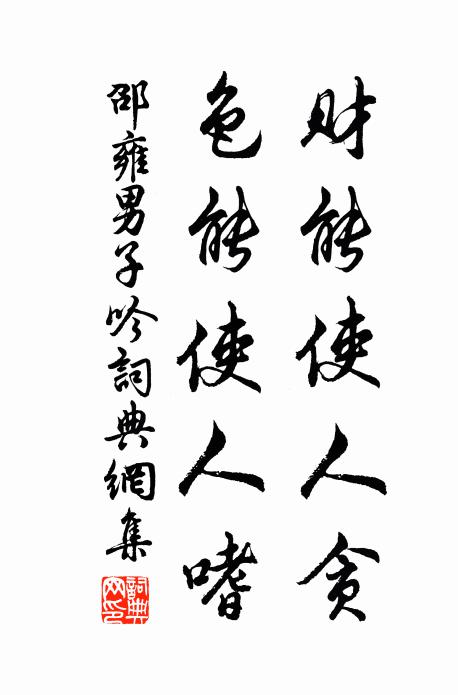 財能使人貪
色能使人嗜
邵雍男子吟詞典網集
詞典
网印